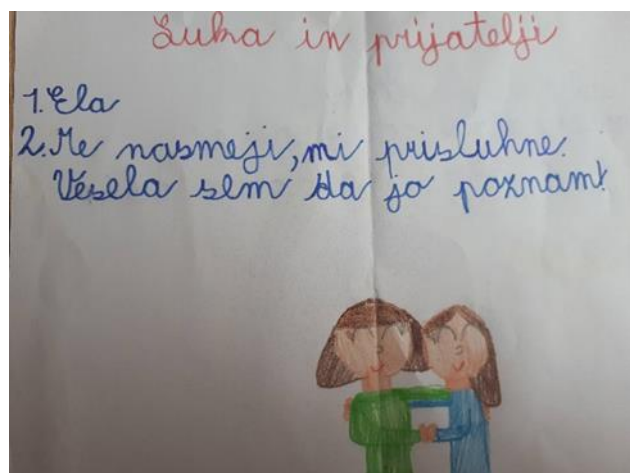 Luka in prijatelji
1. Ela
2. Me nasmeji, mi prisluhne.
Vesela sem da jo poznam!